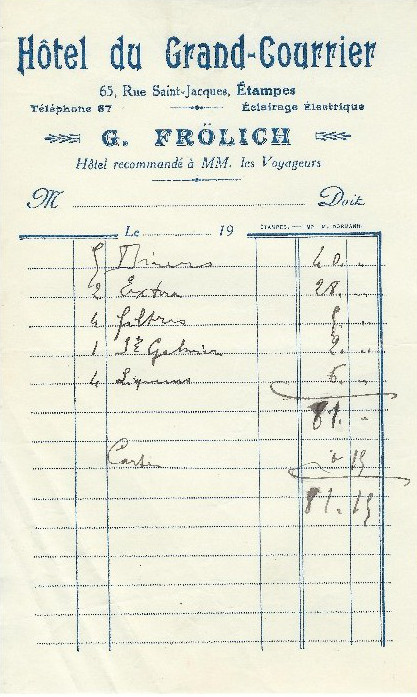 Hôtel du Grand-Courrier
65, Rue Saint-Jacques, Étampes
Téléphone 67 Éclairage Électrique
G. FRÖLICH
Hôtel recommandé à MM. les Voyageurs
M Doit
Le 19 ÉTAMPES. — IMP. M. NORMAND
5 Diners 40. "
2 Extra 28. "
4 filtres 5 "
1 St Galmier 2. "
4 Liqueurs 6. "
81. "
Carte " 15
81. 15